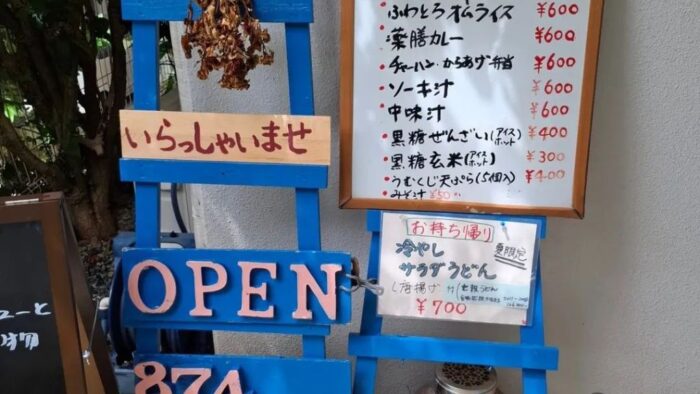 いらっしゃいませ
OPEN
874
・ふわとろオムライス ¥600
・薬膳カレー ¥600
・チャーハン・からあげ弁当 ¥600
・ソーキ汁 ¥600
・中味汁 ¥600
・黒糖ぜんざい(アイス ホット) ¥400
・黒糖玄米(アイス ホット) ¥300
・うむくじ天ぷら(5個入) ¥400
・みそ汁 ¥50
お持ち帰り
冷やし 夏限定
サラダうどん
唐揚げ付
¥700
ューと